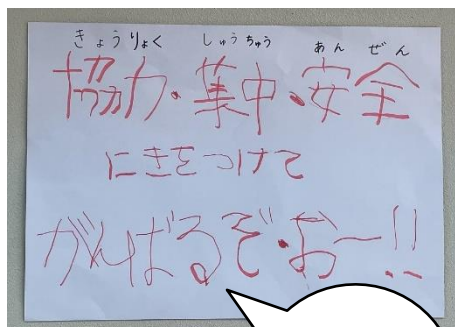 きょうりょく しゅうちゅう あんぜん
協力・集中・安全
にきをつけて
がんばるぞ・お〜!!